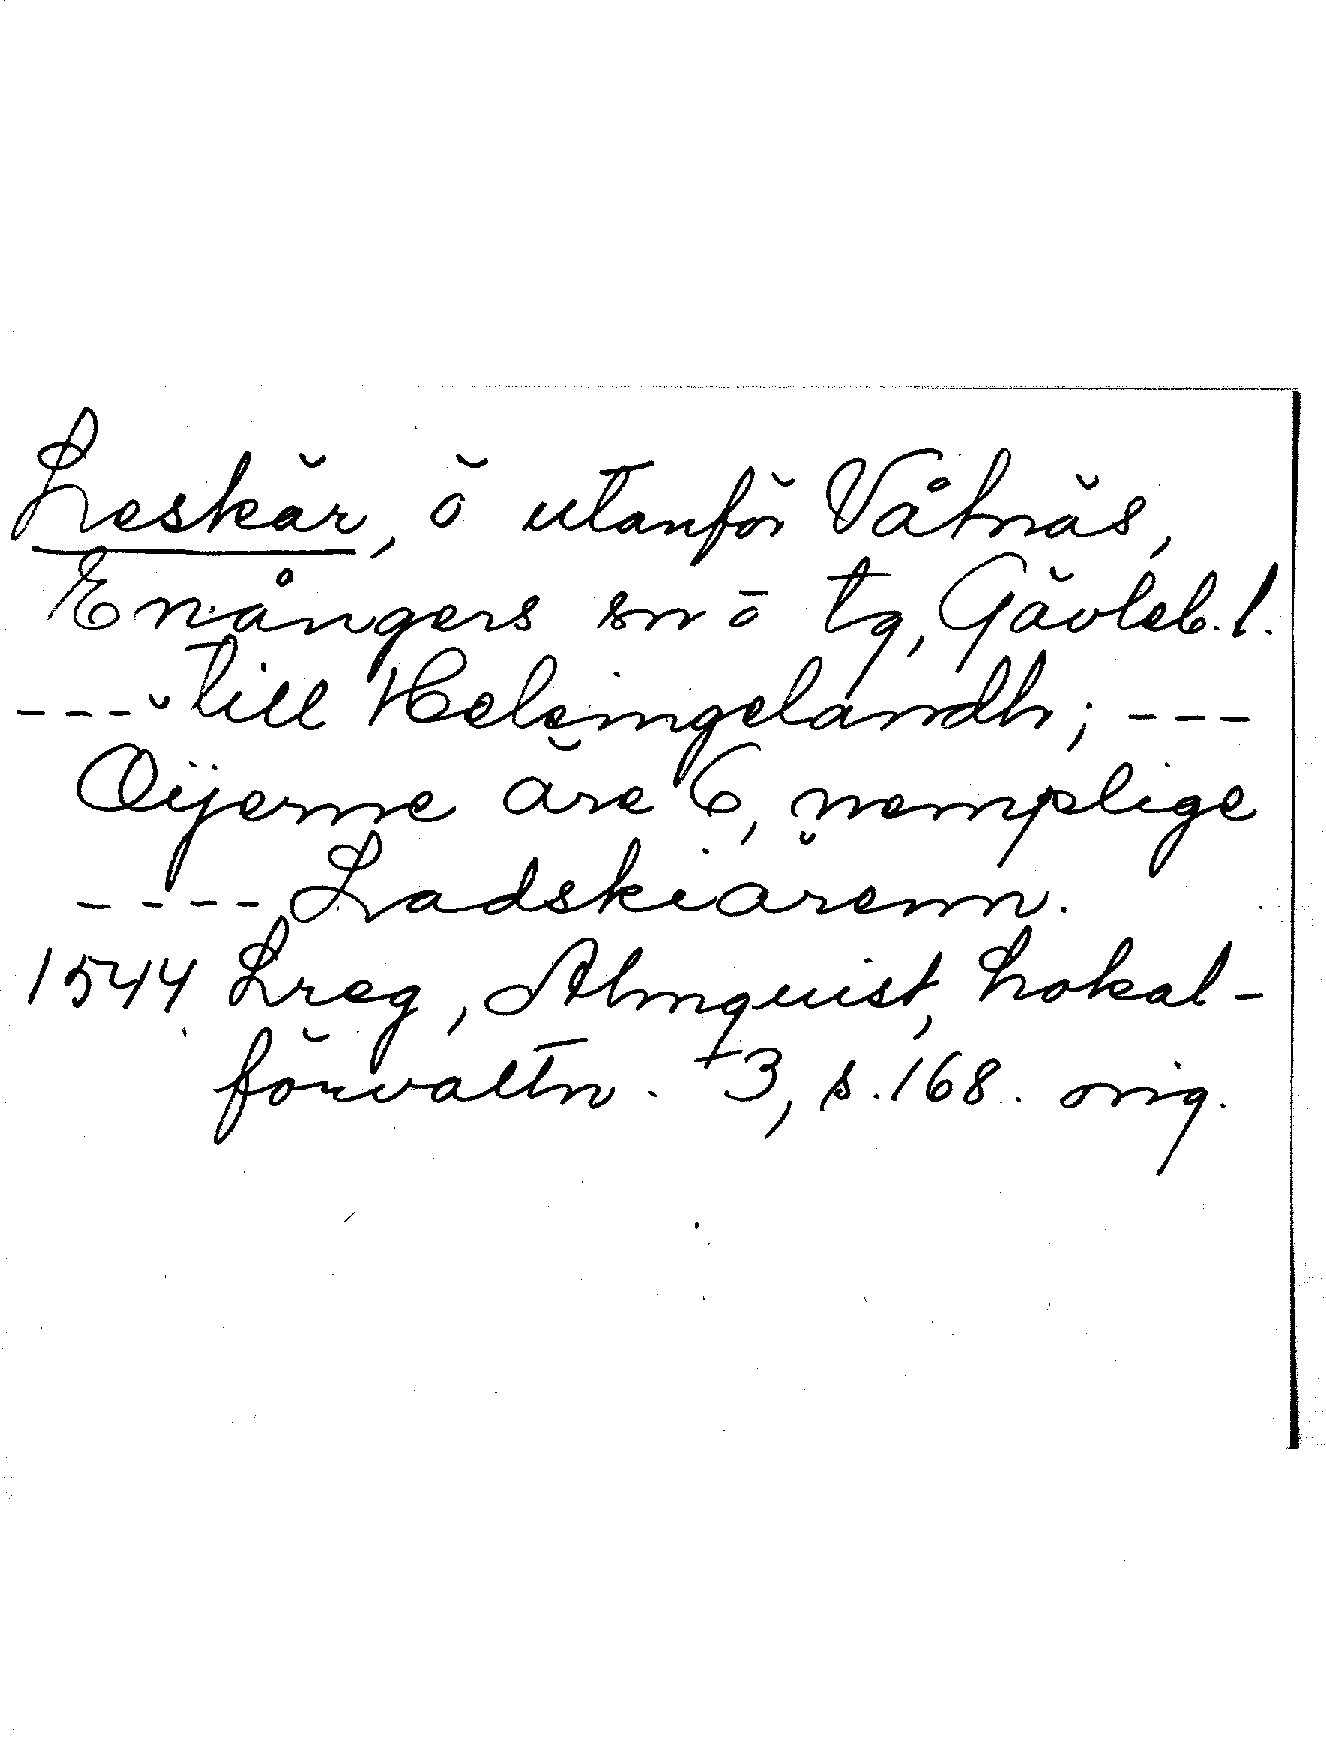 Leskär, ö utanför Våtnäs,
Enångers sn o tg, Gävleb. l.
--- till Helsingelandh; ---
Öijerne äre 6, nemplige
---- Ladskiärenn.
1544 Lreg, Almquist, Lokal-
förvaltn. 3, s. 168. orig.